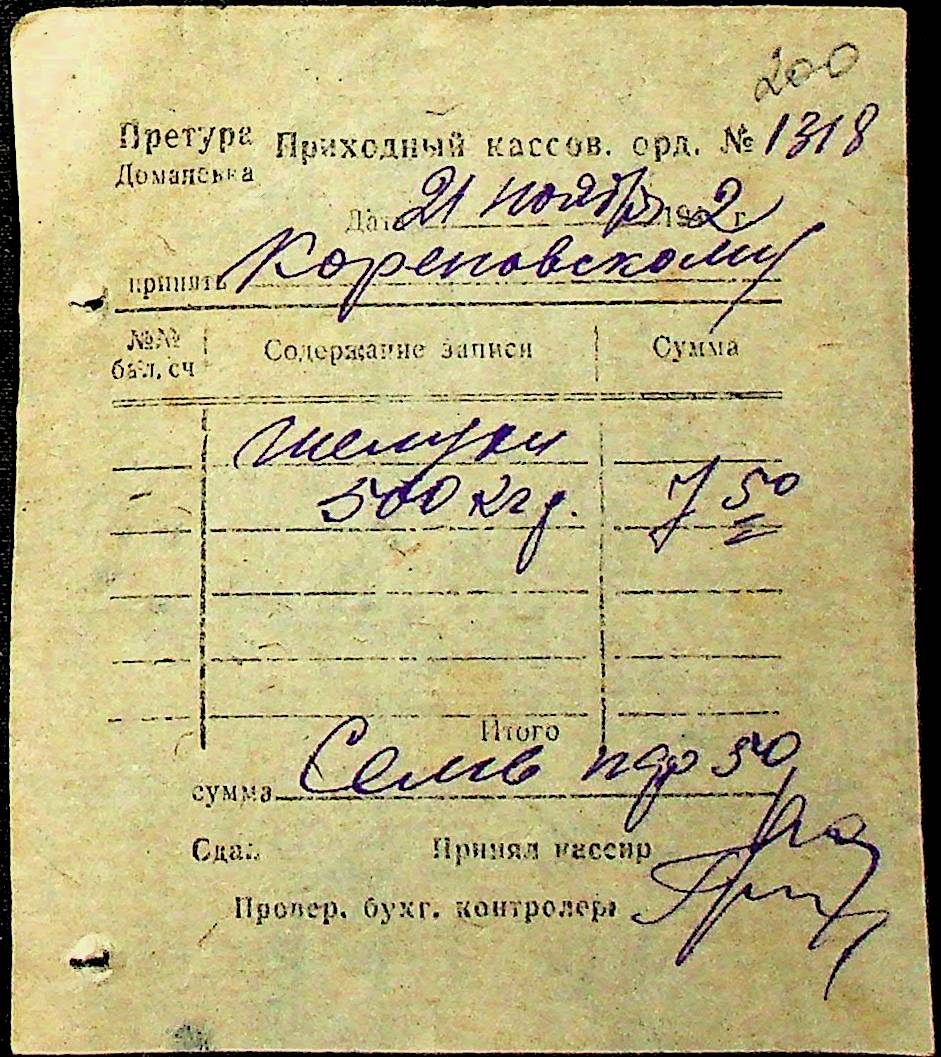 200
Претура Приходный кассов. орд. № 1318
Доманевка
Дата 21 ноября 1942 г.
принять Кореновскому
№№ бал. сч Содержание записи Сумма
шелухи
500 кгр. 7 50
Итого
сумма Семь мар 50
Сдал Принял кассир
Провер. бухг. контролеры